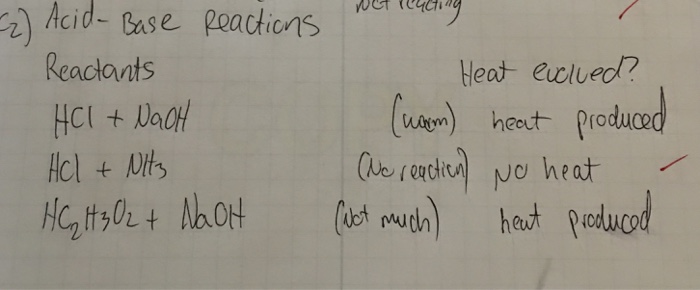 (2) Acid-Base Reactions
Not reacting
Reactants Heat evolved?
HCl + NaOH (warm) heat produced
HCl + NH3 (No reaction) No heat
HC2H3O2 + NaOH (Not much) heat produced